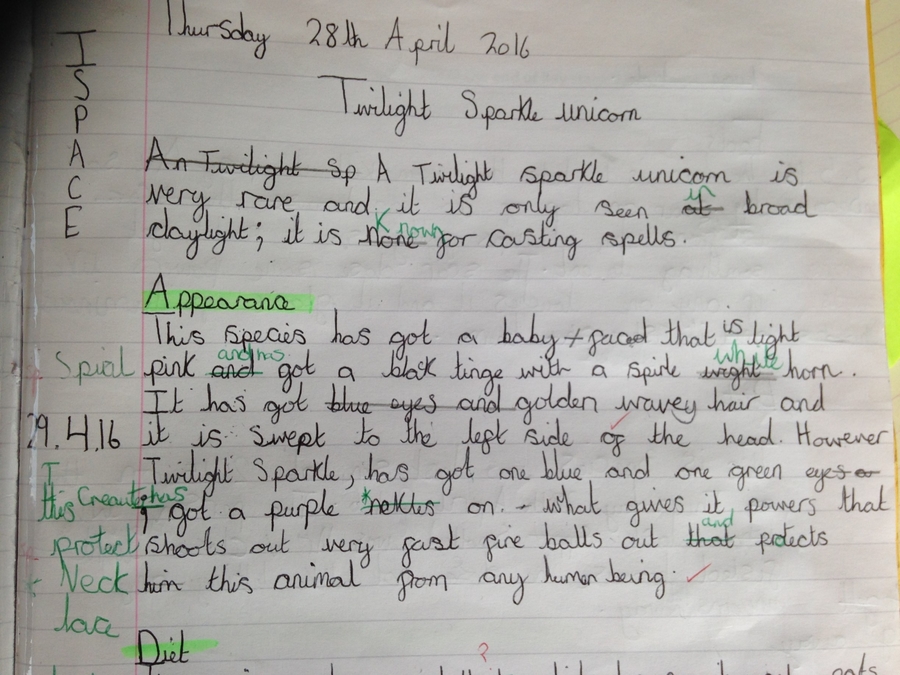 Thursday 28th April 2016
I
S
P
A
C
E
Twilight Sparkle unicorn
An Twilight Sp A Twilight sparkle unicorn is
very rare and it is only seen at in broad
daylight; it is none Known for casting spells.
Appearance
This species has got a baby faced that is light
Spiral
pink and and has got a black tinge with a spirle wight white horn.
It has got blue eyes and golden wavey hair and
29.4.16
it is swept to the left side of the head. However
Twilight Sparkle, has got one blue and one green eyes
This Creauter has
got a purple nekltus on - what gives it powers that
protect
shoots out very fast fire balls out that and protects
Neck
lace
him this animal from any human being.
Diet
?